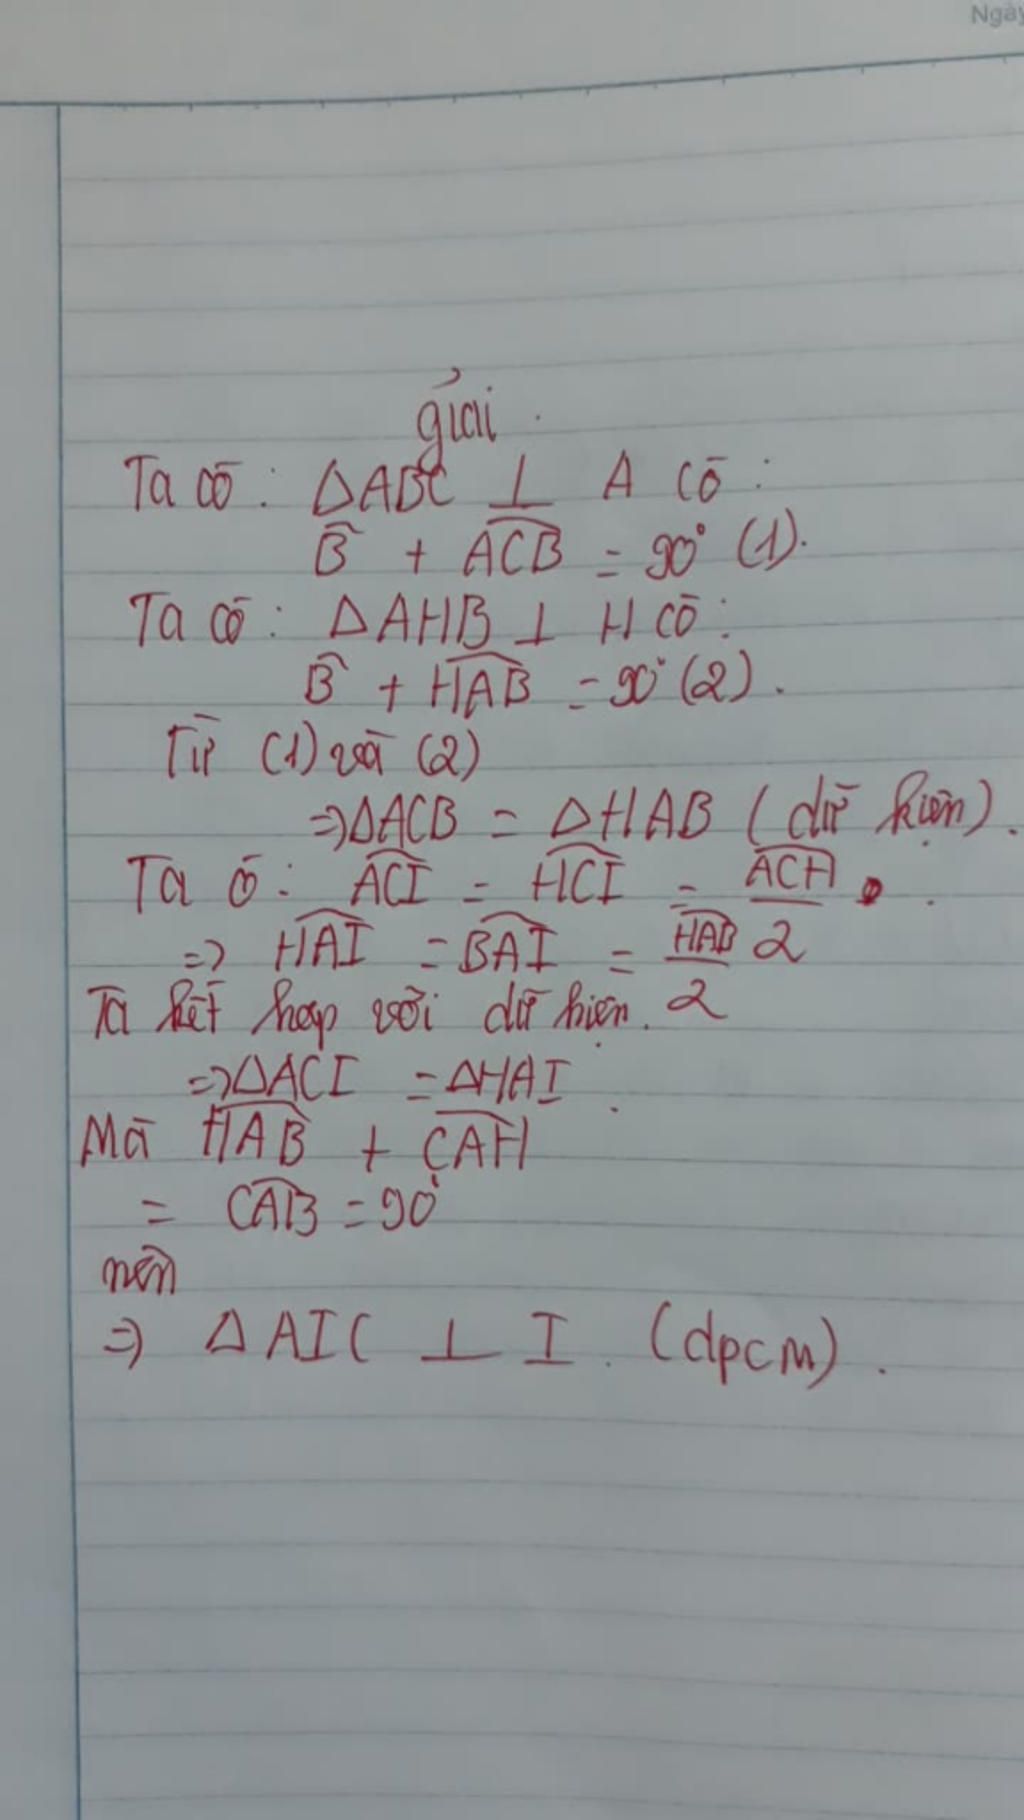 Ngày
giải
Ta có : ΔABC ⊥ A có :
B̂ + \widehat{ACB} = 90° (1).
Ta có : ΔAHB ⊥ H có :
B̂ + \widehat{HAB} = 90° (2).
Từ (1) và (2)
=> ΔACB = ΔHAB ( dữ kiện ) .
Ta ó : \widehat{ACI} = \widehat{HCI} = \frac{\widehat{ACH}}{2} .
=> \widehat{HAI} = \widehat{BAI} = \frac{\widehat{HAB}}{2}
Ta kết hợp với dữ kiện.
=> ΔACI = ΔHAI .
Mà \widehat{HAB} + \widehat{CAH}
= \widehat{CAB} = 90°
nên
=> ΔAIC ⊥ I . (dpcm) .